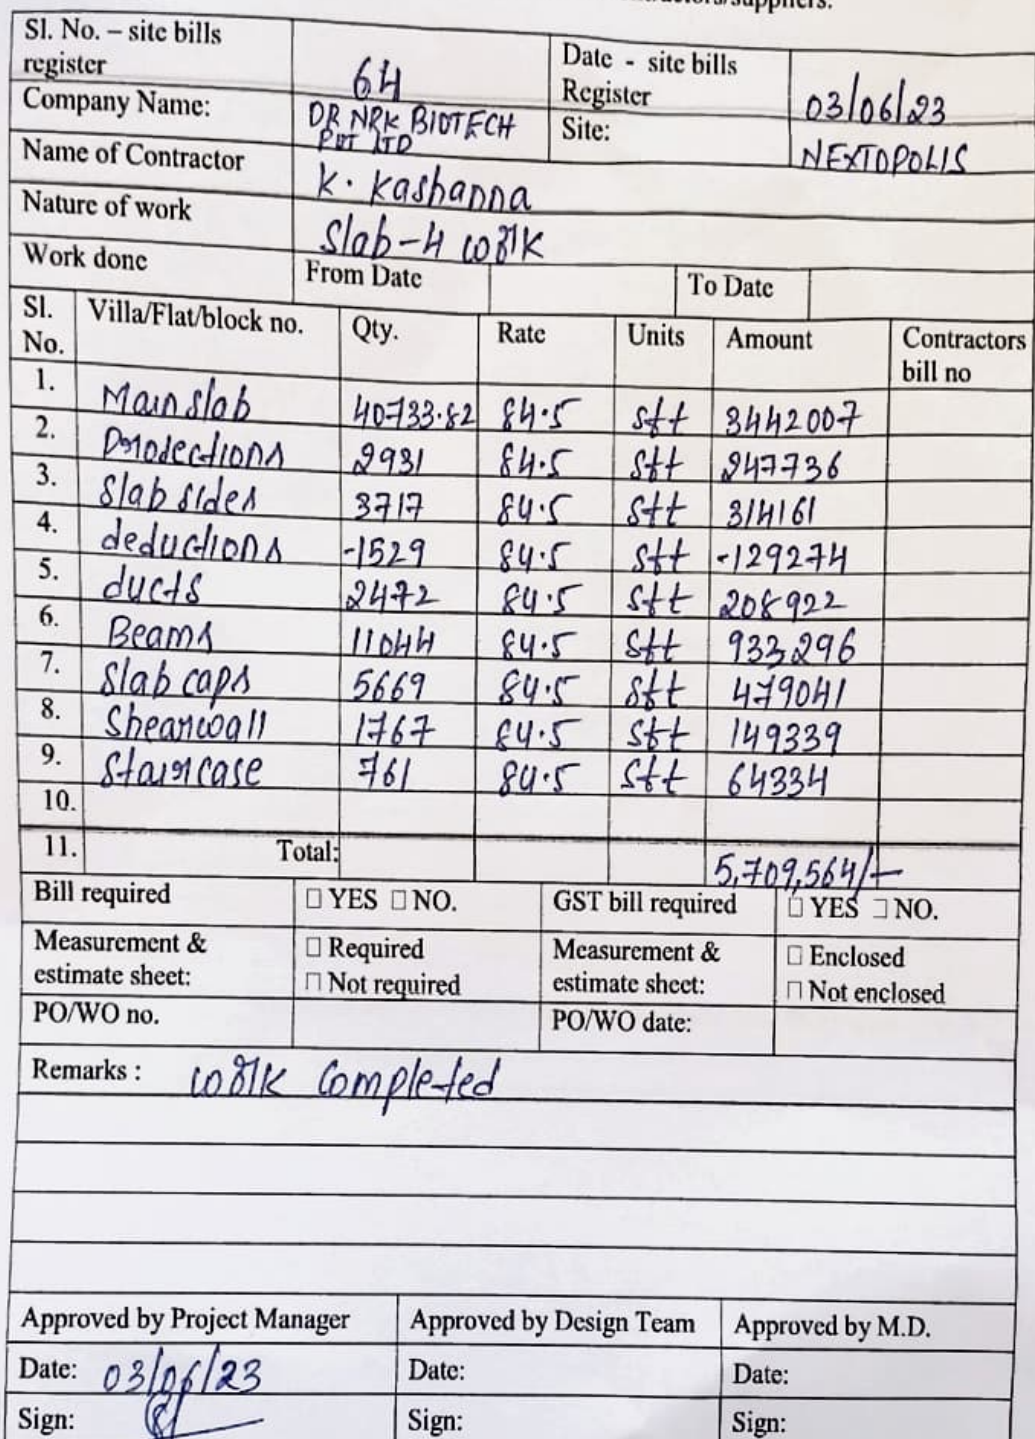 Sl. No. – site bills register 64 Date - site bills Register 03/06/23
Company Name: DR NRK BIOTECH PVT LTD Site: NEXTOPOLIS
Name of Contractor K. Kashanna
Nature of work Slab-4 work
Work done From Date To Date
Sl. No. Villa/Flat/block no. Qty. Rate Units Amount Contractors bill no
1. Mainslab 40733.82 84.5 sft 3442007
2. Projections 2931 84.5 sft 247736
3. Slab sides 3717 84.5 sft 314161
4. deductions -1529 84.5 sft -129274
5. ducts 2472 84.5 sft 208922
6. Beams 11044 84.5 sft 933296
7. Slab caps 5669 84.5 sft 479041
8. Shearwall 1767 84.5 sft 149339
9. Staircase 761 84.5 sft 64334
10.
11. Total: 5,709,564/-
Bill required □ YES □ NO. GST bill required □ YES □ NO.
Measurement & estimate sheet: □ Required □ Not required Measurement & estimate sheet: □ Enclosed □ Not enclosed
PO/WO no. PO/WO date:
Remarks : work completed
Approved by Project Manager Approved by Design Team Approved by M.D.
Date: 03/06/23 Date: Date:
Sign: Sign: Sign: